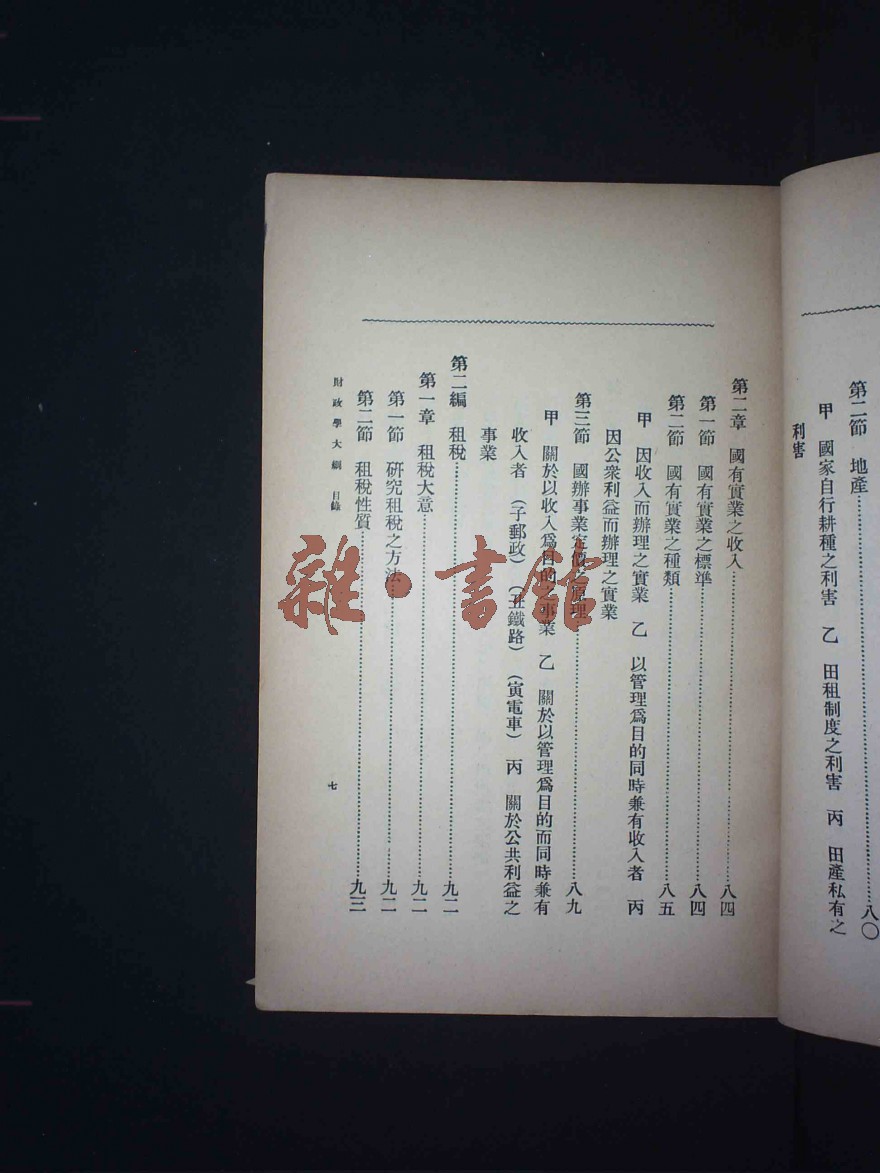 第二節　地產……八〇
甲　國家自行耕種之利害　乙　田租制度之利害　丙　田產私有之
利害
第二章　國有實業之收入……八四
第一節　國有實業之標準……八四
第二節　國有實業之種類……八五
甲　因收入而辦理之實業　乙　以管理爲目的同時兼有收入者　丙
因公衆利益而辦理之實業
第三節　國辦事業定價之原理……八九
甲　關於以收入爲目的之事業　乙　關於以管理爲目的而同時兼有
收入者　(子郵政)　(丑鐵路)　(寅電車)　丙　關於公共利益之
事業
第二編　租稅……九二
第一章　租稅大意……九二
第一節　研究租稅之方法……九二
第二節　租稅性質……九三
財政學大綱　目錄
七
雜·書館